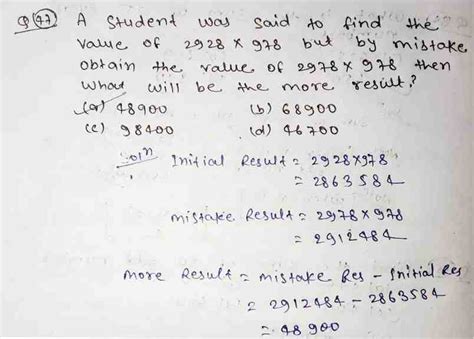 Q(47) A Student was said to find the
value of 2928 × 978 but by mistake
obtain the value of 2978 × 978 then
what will be the more result?
(a) 48900 (b) 68900
(c) 98400 (d) 46700
Solⁿ Initial Result = 2928×978
= 2863584
mistake Result = 2978 × 978
= 2912484
more Result = mistake Res - Initial Res
= 2912484 - 2863584
= 48900